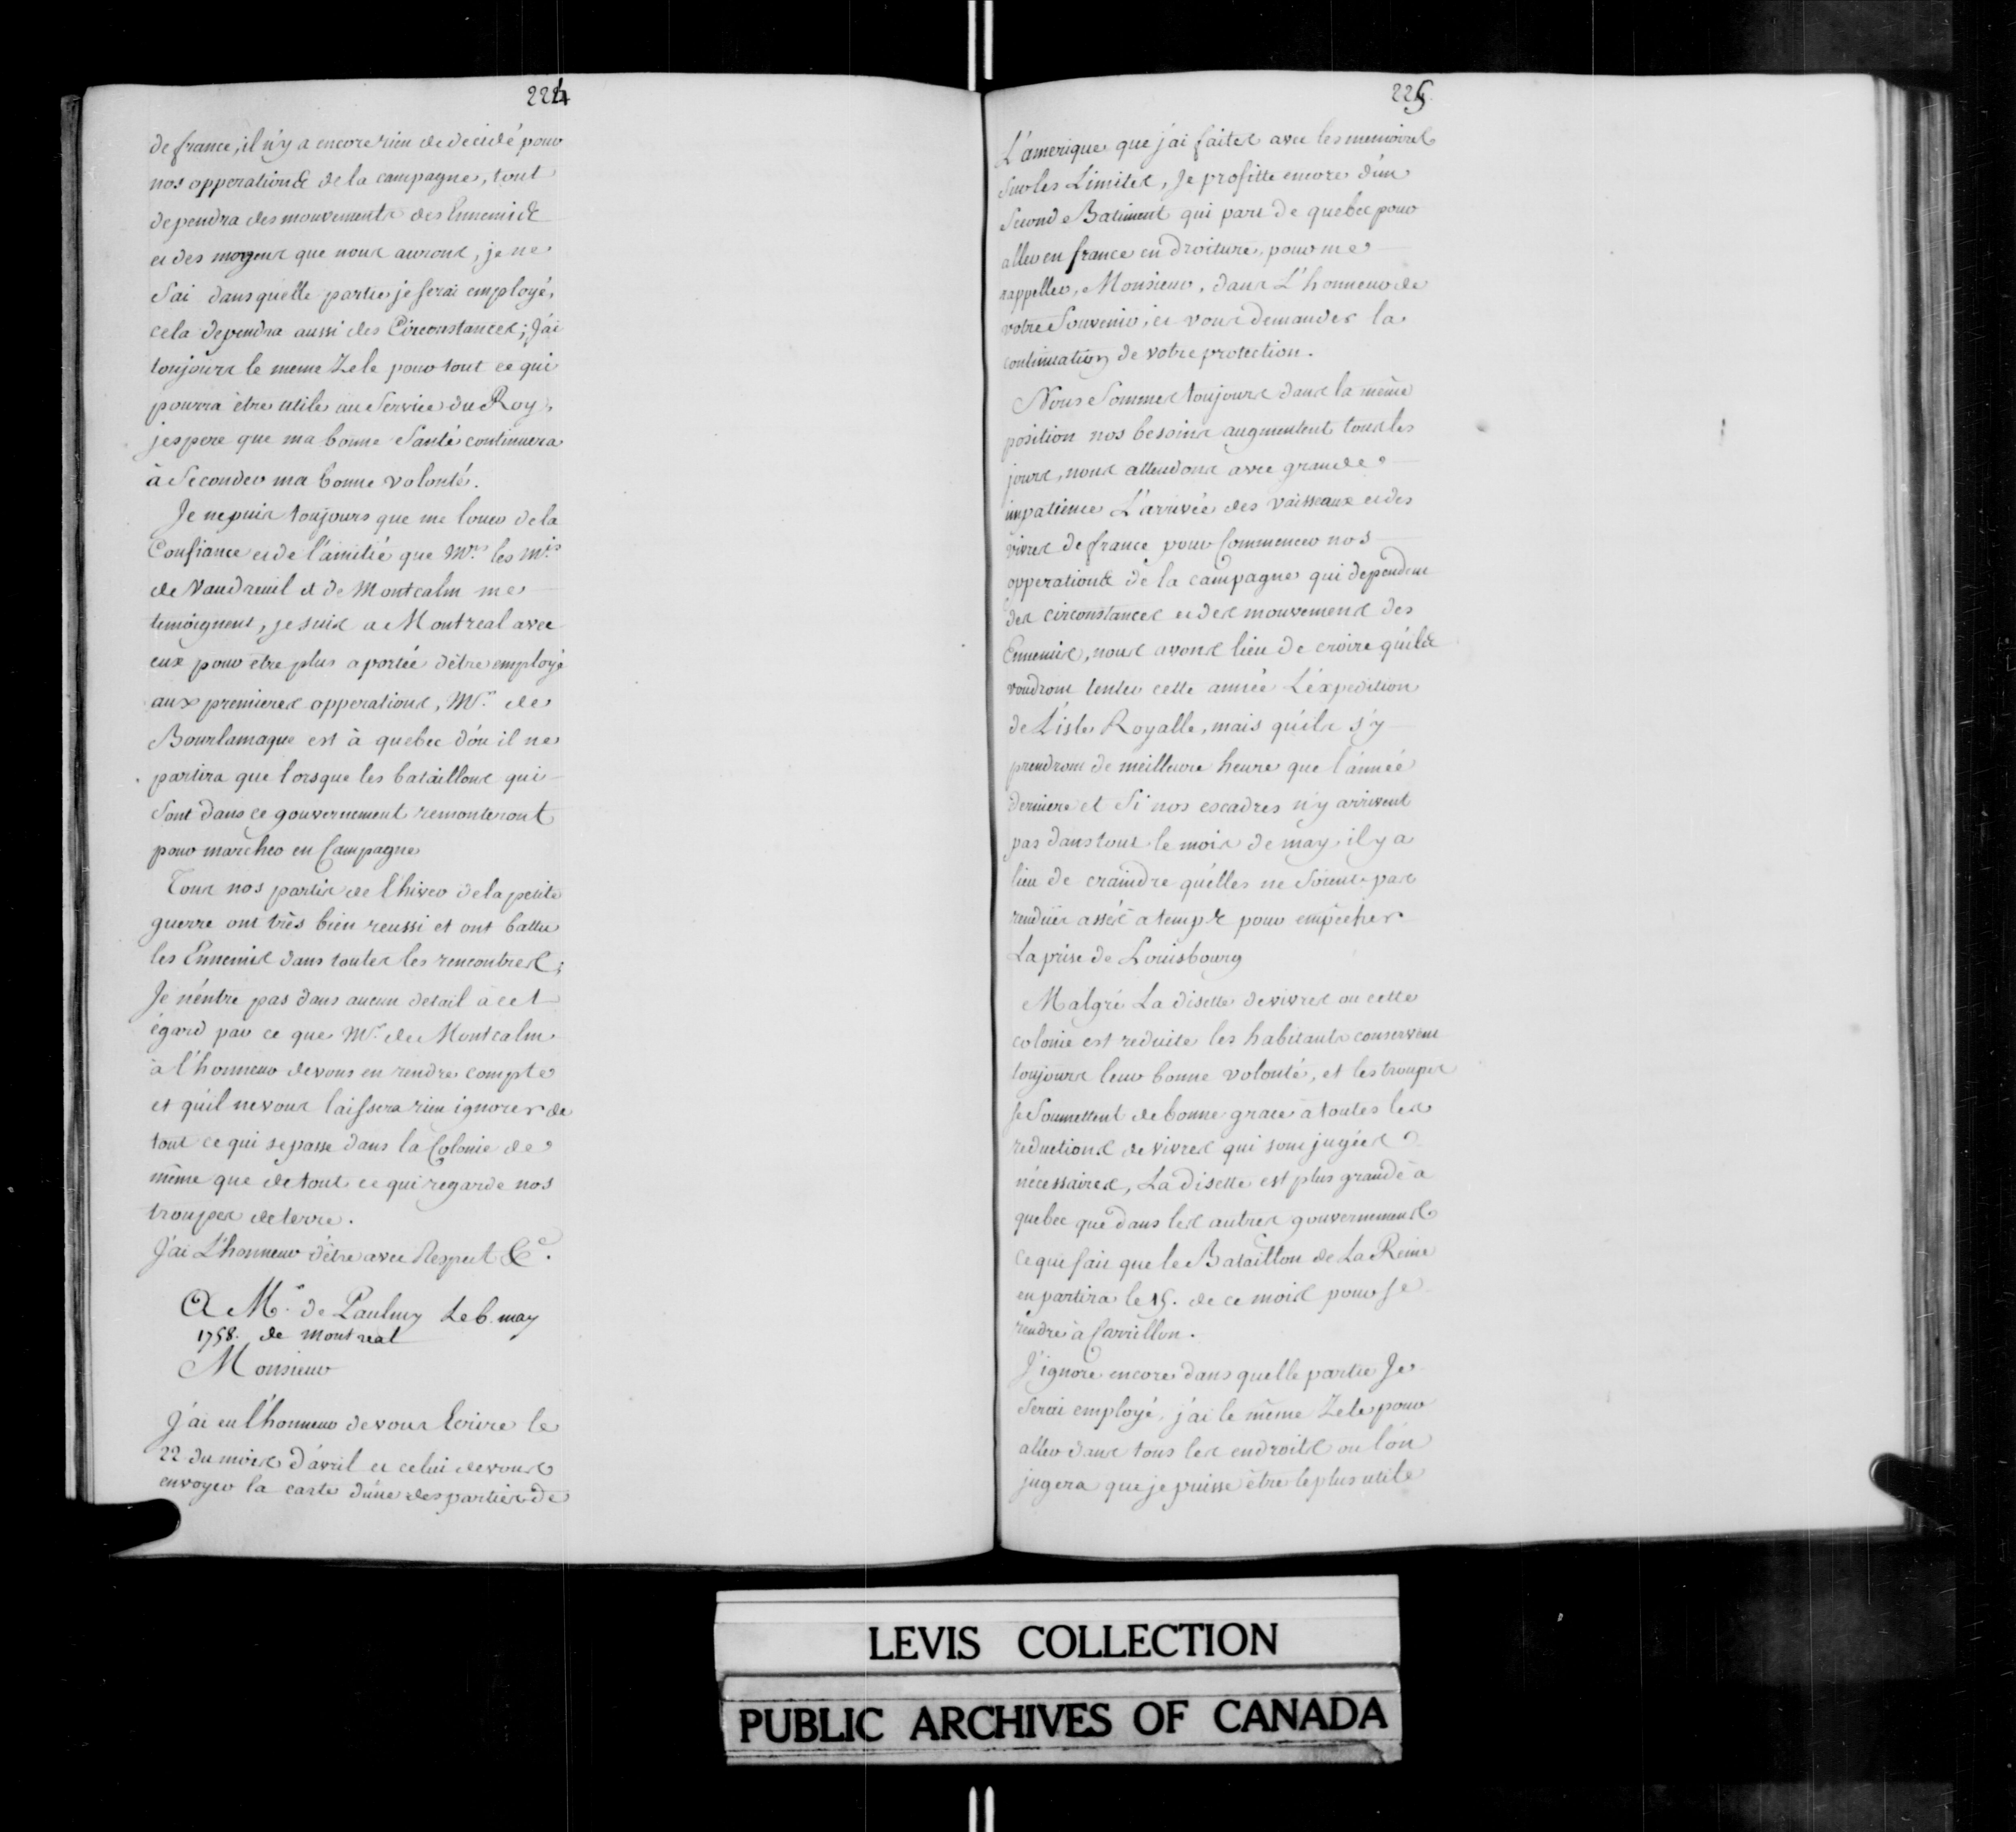 224
de france, il n'y a encore rien de decidé pour
nos opperations de la campagne, tout
dependra des mouvements des Ennemis
et des moyens que nous aurons, je ne
sai dans quelle partie je serai employé,
cela dependra aussi des Circonstances; J'ai
toujours le meme Zele pour tout ce qui
pourra être utile au Service du Roy,
jespere que ma bonne Santé continuera
à Seconder ma bonne volonté.
Je ne puis toujours que me louer de la
Confiance et de l'amitié que Mrs les Mis
de Vaudreuil et de Montcalm me
temoignent, je suis a Montreal avec
eux pour etre plus a portée d'être employé
aux premieres opperations, Mr. de
Bourlamaque est à quebec d'ou il ne
partira que lorsque les bataillons qui
Sont dans ce gouvernement remonteront
pour marcher en Campagne
Tous nos partis de l'hiver de la petite
guerre ont très bien reussi et ont battu
les Ennemis dans toutes les rencontres;
Je n'entre pas dans aucun detail à cet
égard par ce que Mr. de Montcalm
à l'honneur de vous en rendre compte
et qu'il ne vous laissera rien ignorer de
tout ce qui se passe dans la Colonie de
même que de tout ce qui regarde nos
troupes de terre.
J'ai L'honneur d'être avec Respect &c.
A Mr. de Paulmy Le 6. may
1758. de montreal
Monsieur
J'ai eu l'honneur de vous Ecrire le
22 du mois d'avril et celui de vous
envoyer la carte d'une des parties de
225.
L'amerique que j'ai faites avec les memoires
Sur les Limites, Je profitte encore d'un
Second Batiment qui part de quebec pour
aller en france en droiture, pour me
rappeller, Monsieur, dans L'honneur de
votre Souvenir, et vous demander la
continuation de votre protection.
Nous Sommes toujours dans la même
position nos besoins augmentent tous les
jours, nous attendons avec grande
impatience L'arrivée des vaisseaux et des
vivres de france pour Commencer nos
opperations de la campagne qui dependent
des circonstances et des mouvemens des
Ennemis, nous avons lieu de croire qu'ils
voudront tenter cette année L'expedition
de L'isle Royalle, mais qu'ils s'y
prendront de meilleure heure que l'année
derniere et Si nos escadres n'y arrivent
pas dans tout le mois de may il y a
lieu de craindre qu'elles ne Soient pas
rendues assés a temps pour empêcher
La prise de Louisbourg
Malgré La disette de vivres ou cette
colonie est reduite les habitants conservent
toujours leur bonne volonté, et les troupes
se Soumettent de bonne grace à toutes les
reductions de vivres qui sont jugées
nécessaires, La disette est plus grande à
quebec que dans les autres gouvernemens
ce qui fait que le Bataillon de La Reine
en partira le 15. de ce mois pour se
rendre à Carrillon.
J'ignore encore dans quelle partie Je
Serai employé, j'ai le même Zele pour
aller dans tous les endroits ou l'on
jugera que je puisse être le plus utile
LEVIS COLLECTION
PUBLIC ARCHIVES OF CANADA